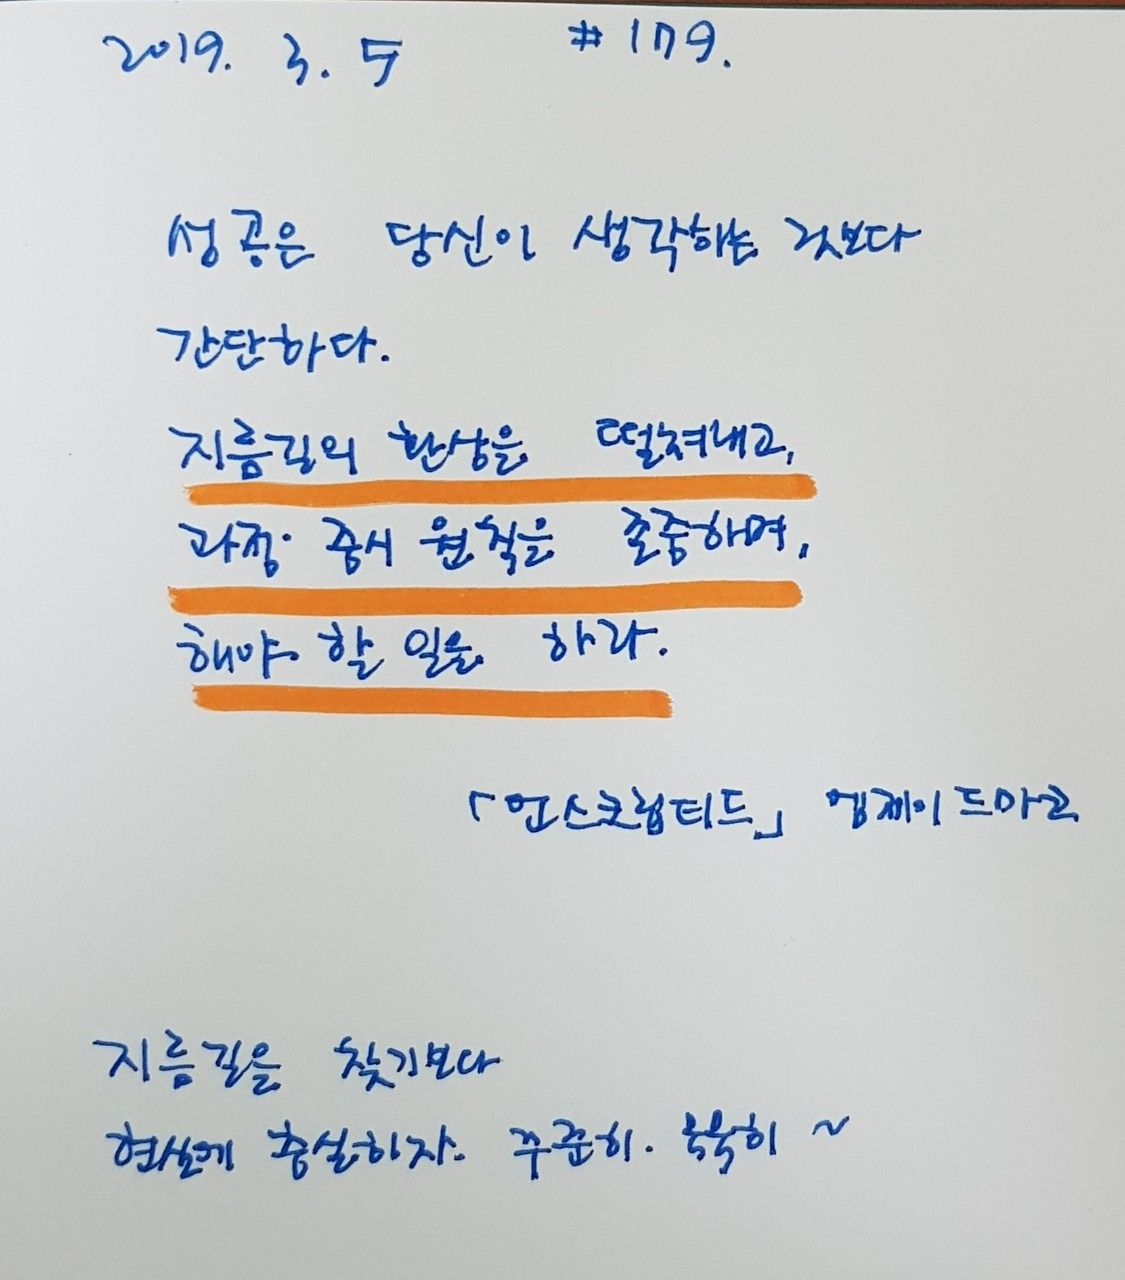 2019. 3. 5 #179.
성공은 당신이 생각하는 것보다
간단하다.
지름길의 환상은 떨쳐내고,
과정 중시 원칙을 존중하며,
해야 할 일을 하라.
「언스크립티드」 엠제이 드마코
지름길을 찾기보다
현실에 충실하자. 꾸준히. 묵묵히 ~